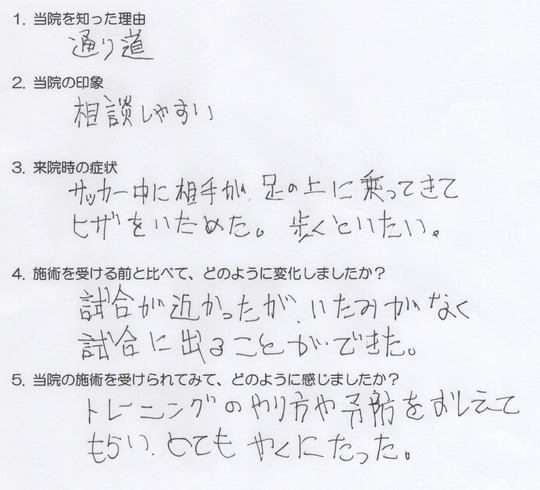 1. 当院を知った理由
通り道
2. 当院の印象
相談しやすい
3. 来院時の症状
サッカー中に相手が、足の上に乗ってきて
ヒザをいためた。歩くといたい。
4. 施術を受ける前と比べて、どのように変化しましたか？
試合が近かったが、いたみがなく
試合に出ることができた。
5. 当院の施術を受けられてみて、どのように感じましたか？
トレーニングのやり方や予防をおしえて
もらい、とてもやくにたった。